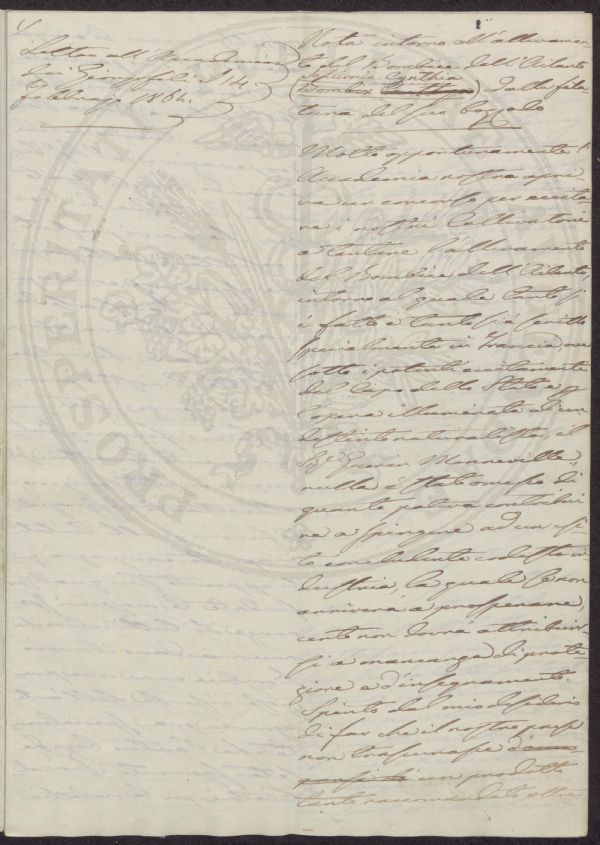 Letta all'Accademia
dei Georgofili il 14.
Febbrajo 1864.
Nota intorno all'allevamen-
to del Bombice dell'Ailanto
Saturnia Cynthia
(Bombix Cynthia) e dalla fila-
tura del suo bozzolo
Molto opportunamente l'
Accademia nostra apri-
va un concorso per eccita-
re i nostri
a tentare l'allevamento
del Bombice dell'Ailanto,
intorno al quale tanto si
è fatto e tanto si è scritto
specialmente in Francia ove
sotto i potenti eccitamenti
del Capo dello Stato e p
l'opera illuminata di un
distinto naturalista, il
Sig.r Guerin Menneville,
nulla è stato omesso di
quanto poteva contribui-
re a spingere ad un esi-
to concludente codesta in-
dustria, la quale se non
arriverà a prosperare,
certo non dovrà attribuir-
si a mancanza di prote-
zione e d'insegnamento.
Spinto dal mio desiderio
di far che il nostro paese
non trascurasse
un prodotto
tanto raccomandato oltre
PROSPERITATI